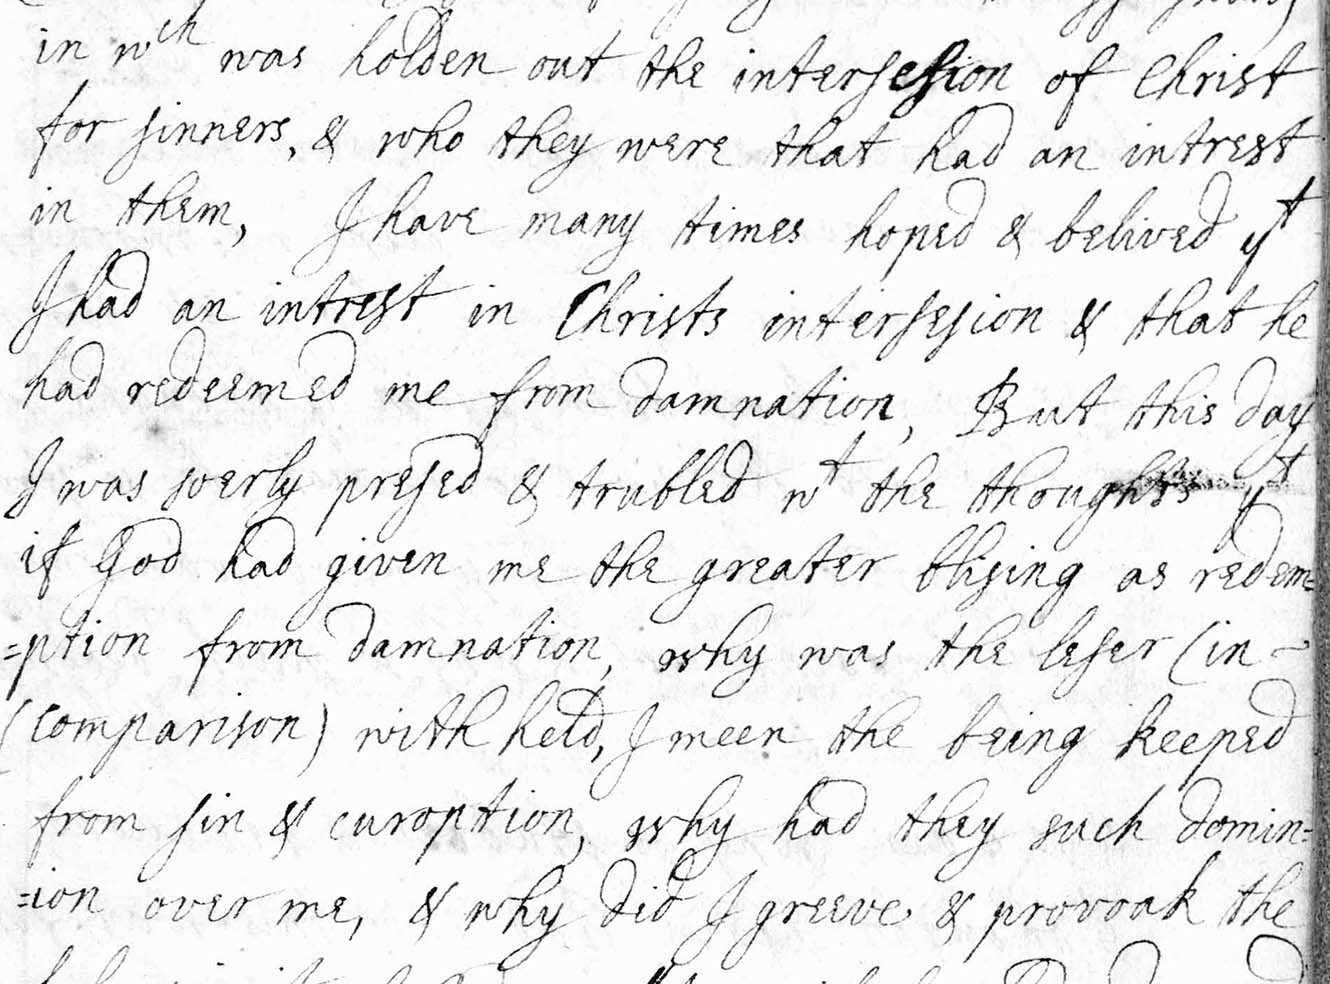 in wch was holden out the intersesion of Christ
for sinners, & who they were that had an intrest
in them, I have many times hoped & belived yt
I had an intrest in Christs intersesion & that he
had redeemed me from damnation, But this day
I was soerly presed & trubled wt the thoughts yt
if God had given me the greater blising as redem=
=ption from damnation, why was the leser (in-
(comparison) with held, I meen the being keeped
from sin & curoption, why had they such domin=
=ion over me, & why did I greeve & provoak the